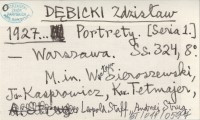 DĘBICKI Zdzisław
1927... Portrety. [Seria 1.]
— Warszawa. Ss. 324, 8°
M. in. Wacł. Sieroszewski,
Jan Kasprowicz, Kaz. Tetmajer,
Leopold Staff, Andrzej Strug